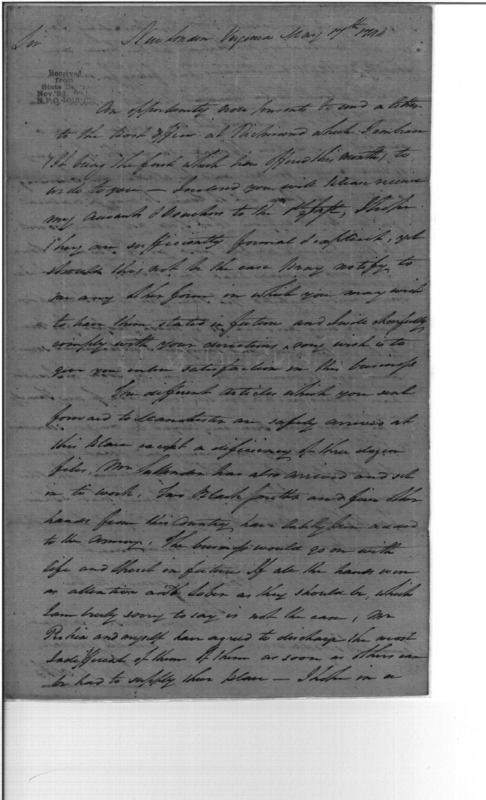 Sir New London Virginia May 17th 1794
Received
from
State De
Nov.
An opportunity now presents to send a letter
to the Post office at Richmond which I embrace
it being the first which has offered this month, to
write to you — Inclosed you will please receive
my Accounts & Vouchers to the I hope
they are sufficiently formal & explicit, yet
should this not be the case pray notify to
me any other form in which you may wish
to have them stated in future and I will chearfully
comply with your directions, my wish is to
give you entire satisfaction in this business
The different Articles which you sent
forward to Manchester are safely arrived at
this place except a deficiency of three dozen
files, Mr. Callender has also arrived and set
in to work, Two Black smiths and five other
hands from this Country, have lately been added
to the Armory. The business would go on with
life and Spirit in future If all the hands were
as attentive and Sober as they should be, which
I am truly sorry to say is not the case, Mr
Perkin and myself have agreed to discharge the most
Indifferent of them as soon as others can
be had to supply their place — I hope in a